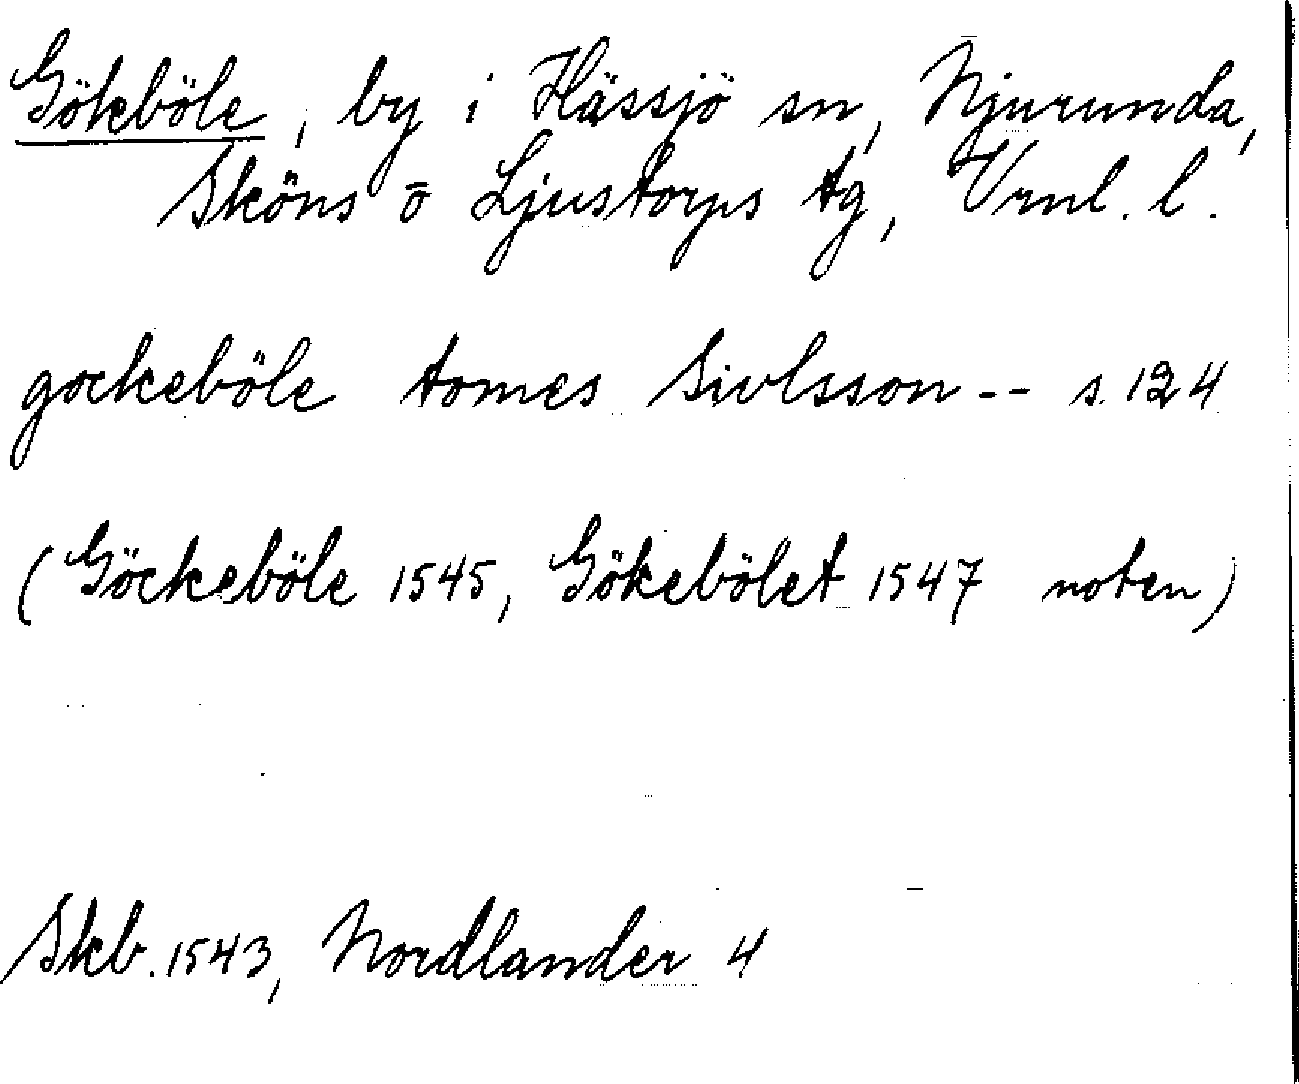 Gökeböle, by i Hässjö sn, Njurunda,
Sköns o Ljustorps tg, Vrml. l.
gockeböle tomes Sivlsson -- s. 124
(Göckeböle 1545, Gökebölet 1547 noten)
Skb. 1543, Nordlander 4